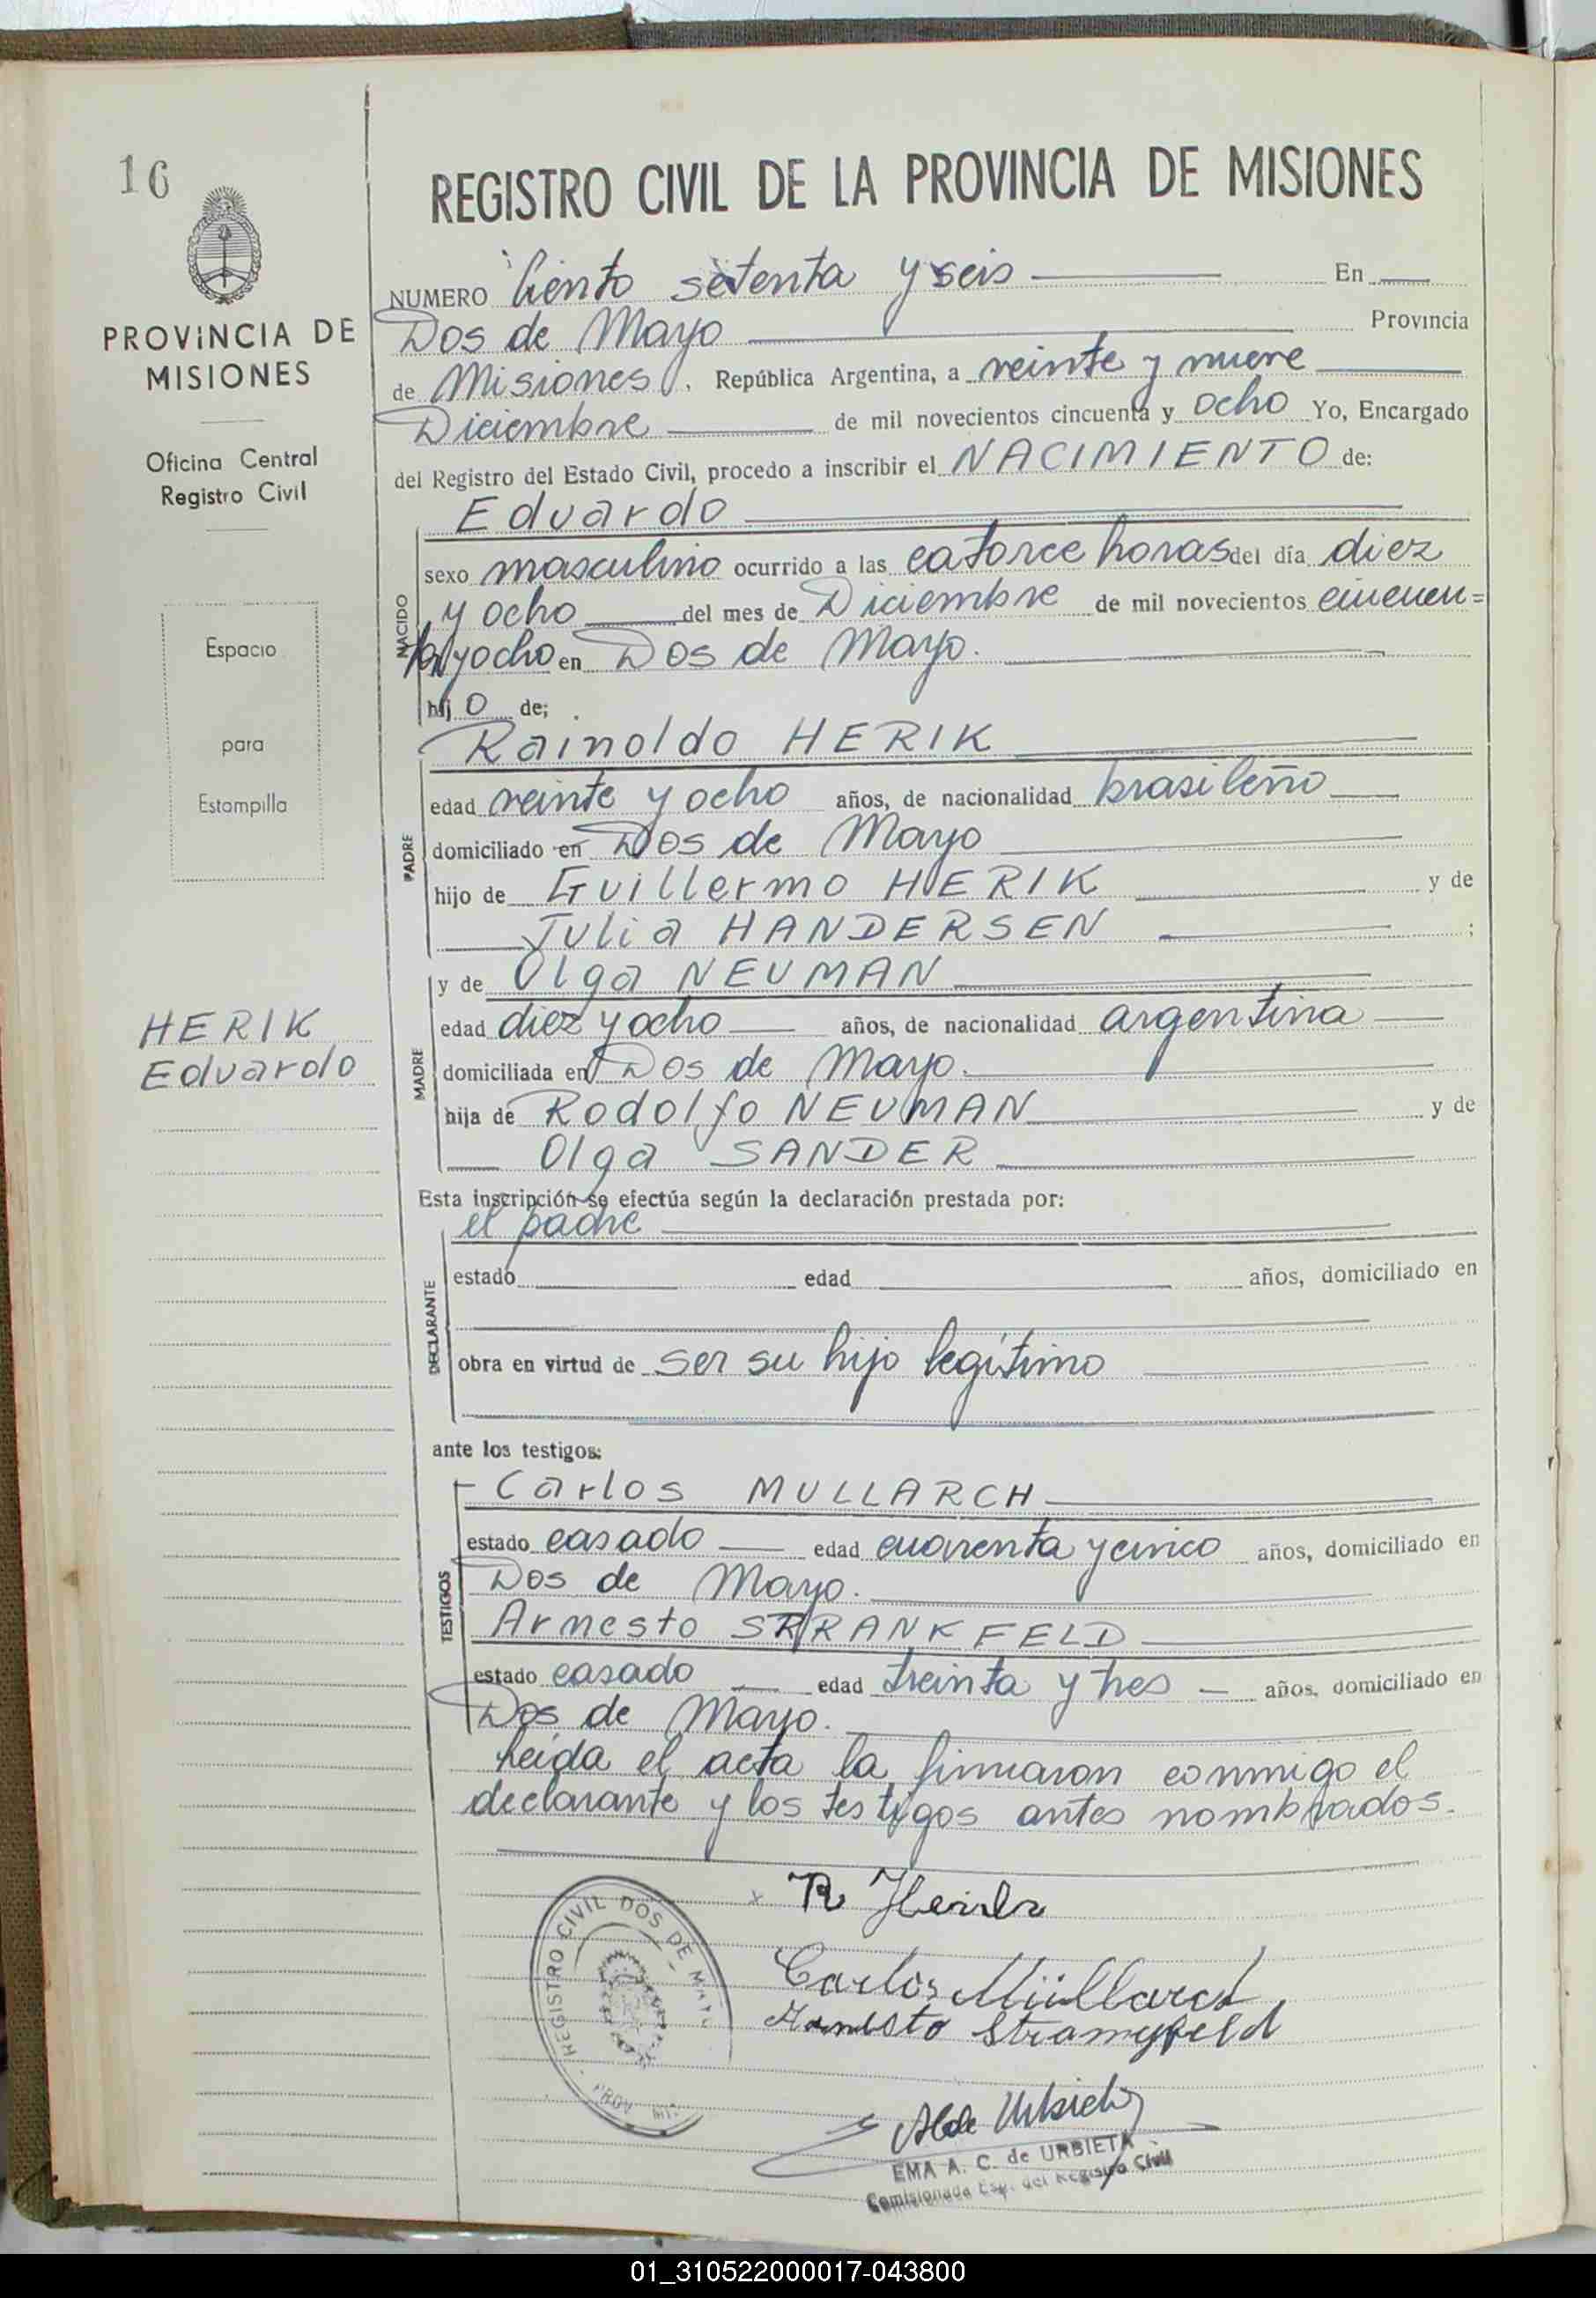 16
PROVINCIA DE
MISIONES
Oficina Central
Registro Civil
Espacio
para
Estampilla
HERIK
Eduardo
REGISTRO CIVIL DE LA PROVINCIA DE MISIONES
NUMERO Ciento setenta y seis En
Dos de Mayo Provincia
de Misiones, República Argentina, a veinte y nueve
Diciembre de mil novecientos cincuenta y ocho Yo, Encargado
del Registro del Estado Civil, procedo a inscribir el NACIMIENTO de:
Eduardo
NACIDO
sexo masculino ocurrido a las catorce horas del día diez
y ocho del mes de Diciembre de mil novecientos cincuen=
ta y ocho en Dos de Mayo.
hijo de;
Rainoldo HERIK
PADRE
edad veinte y ocho años, de nacionalidad brasileño
domiciliado en Dos de Mayo
hijo de Guillermo HERIK y de
Julia HANDERSEN ;
y de Olga NEUMAN
MADRE
edad diez y ocho años, de nacionalidad argentina
domiciliada en Dos de Mayo.
hija de Rodolfo NEUMAN y de
Olga SANDER
Esta inscripción se efectúa según la declaración prestada por:
el padre
DECLARANTE
estado edad años, domiciliado en
obra en virtud de ser su hijo legítimo
ante los testigos:
Carlos MULLARCH
TESTIGOS
estado casado edad cuarenta y cinco años, domiciliado en
Dos de Mayo.
Arnesto SRRANKFELD
estado casado edad treinta y tres años, domiciliado en
Dos de Mayo.
Leída el acta la firmaron conmigo el
declarante y los testigos antes nombrados.
REGISTRO CIVIL DOS DE MAYO
PROV. MI.
x R Herik
Carlos Müllarch
Arnesto
EMA A. C. de URBIETA
Comisionada Esp. del Registro Civil
01_310522000017-043800